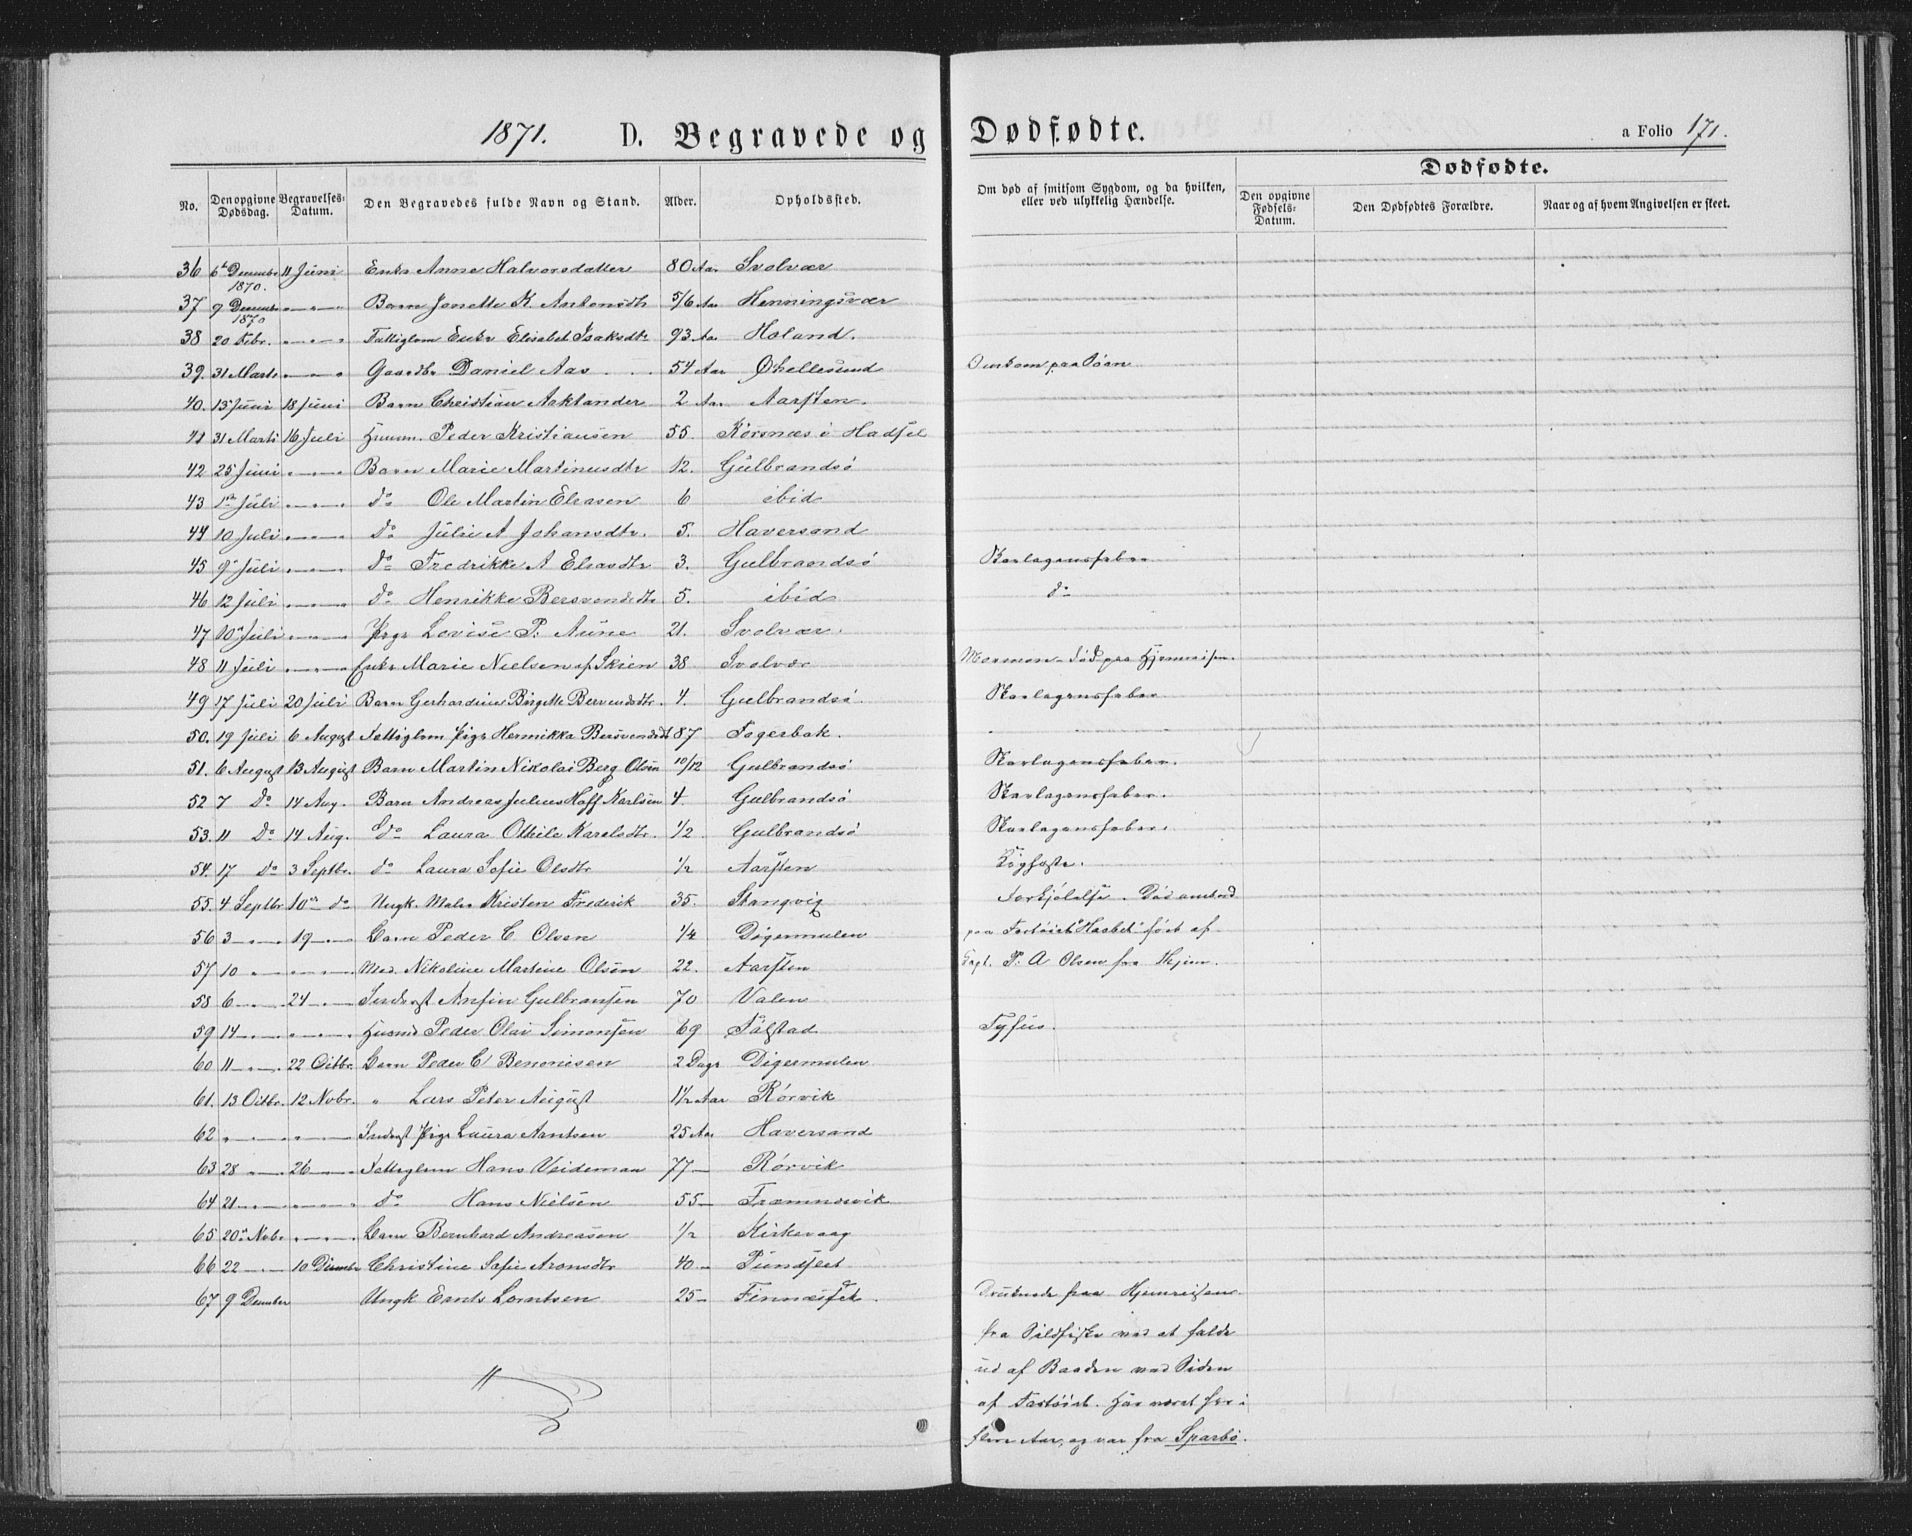 1871. D. Begravede og Dødfødte. a Folio 171.
No. Den opgivne Dødsdag. Begravelses-Datum. Den Begravedes fulde Navn og Stand. Alder. Opholdssted. Om død af smitsom Sygdom, og da hvilken, eller ved ulykkelig Hændelse. Dødfødte.
Den opgivne Fødsels-Datum. Den Dødfødtes Forældre. Naar og af hvem Angivelsen er skeet.
36 6te Decembr 1870. 11 Juni Enke Anne Halvorsdatter 80 Aar Svolvær
37 9 Decembr 1870 " Barn Jonette K. Antonsdtr 5/6 Aar Henningsvær
38 20 Febr. " Fattiglem Enke Elisabet Isaksdtr 93 Aar Holand.
39. 31 Marts " Gaardbr Daniel Aas 54 Aar Øhellesund Omkom paa Søen
40. 13 Juni 18 Juni Barn Christian Aaklander 2 Aar Aarsten.
41 31 Marts 16 Juli Huusm. Peder Kristiansen 55. Korsnæs i Hadsel
42 25 Juni " Barn Marie Martinusdtr 12. Gulbrandsø
43 1ste Juli " do Ole Martin Eliasen 6 ibid
44 10 Juli " do Julie A Johansdtr. 5. Haversand
45 9 Juli " do Fredrikke A Eliasdtr 3. Gulbrandsø Skarlagensfeber
46 12 Juli " do Henrikke Bersvendsdtr 5. ibid do
47 10 Juli " Pige Lovise P. Aune 21. Svolvær.
48 11 Juli " Enke Marie Nielsen af Skien 38 Svolvær Mormon - død paa Hjemreisen.
49 17 Juli 20 Juli Barn Gerhardine Birgitte Bersvendsdtr. 4. Gulbrandsø. Skarlagensfeber
50. 19 Juli 6 August Fattiglem Pige Hermikka Bersvendsdt 87 Fagerbak.
51. 6 August 13 August Barn Martin Nikolai Berg Olsen 10/12 Gulbrandsø Skarlagensfeber.
52 7 Do 14 Aug. Barn Andreas Julius Hoff Karlsen 4 Gulbrandsø Skarlagensfeber.
53. 11 Do 14 Aug. do Laura Ottile Karlsdtr. 1/2 Gulbrandsø Skarlagensfeber.
54. 17 do 3 Septbr. do Laura Sofie Olsdtr 1/2 Aarsten Kighoste.
55. 4 Septbr 10 do Ungk. Maler Kristen Frederik 35. Skangvig Forkjølelse. Død ombord
56 3 " 19 " Barn Peder C. Olsen 1/4 Digermulen paa Fartøiet "Haabet" ført af
57 10 " " Mad. Nikoline Martine Olsen 22. Aarsten Capt. P. A Olsen fra Skjen.
58 6 " 24 " Inderst Anfin Gulbransen 70 Valen
59 14 " " Huusmd Peder Olai Simonsen 69 Følstad Tyfus.
60 11 " 22 Octbr. Barn Peder C Benonisen 2 Dage Digermulen
61. 13 Octbr. 12 Novbr. " Lars Peter August 1 1/2 Aar Rørvik
62 " " Inderst Pige Laura Aantsen 25 Aar Haversand
63 28 " 26 " Fattiglem Hans Veideman 77 Rørvik
64 21 " " do Hans Nielsen 55 Framnesvik
65 20 Novbr " Barn Bernhard Andreasen 1/2 Kirkevaag
66 22 " 10 Decembr Christine Sofie Aronsdtr 40 Pundslet
67 9 December Ungk Ernts Lorntsen 25 Finnæsset. Druknede paa Hjemreisen
fra Sildfiske ved at falde
ud af Baaden ved Siden
af Fartøiet. Har været her i
flere Aar, og var fra Sparbø.